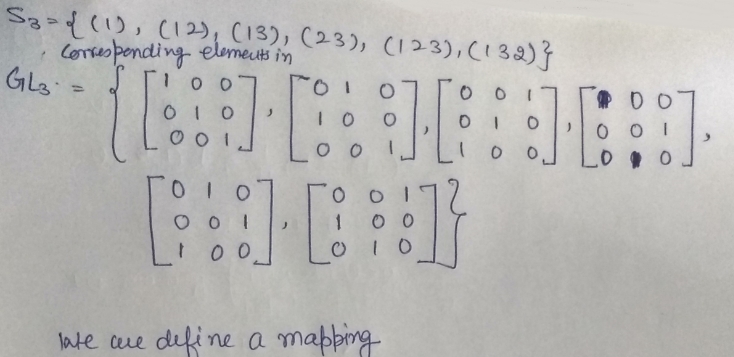 S₃ = { (1), (12), (13), (23), (123), (132)}
corresponding elements in
GL₃ = { [1 0 0 0 1 0 0 0 1], [0 1 0 1 0 0 0 0 1], [0 0 1 0 1 0 1 0 0], [1 0 0 0 0 1 0 1 0],
[0 1 0 0 0 1 1 0 0], [0 0 1 1 0 0 0 1 0] }
we define a mapping